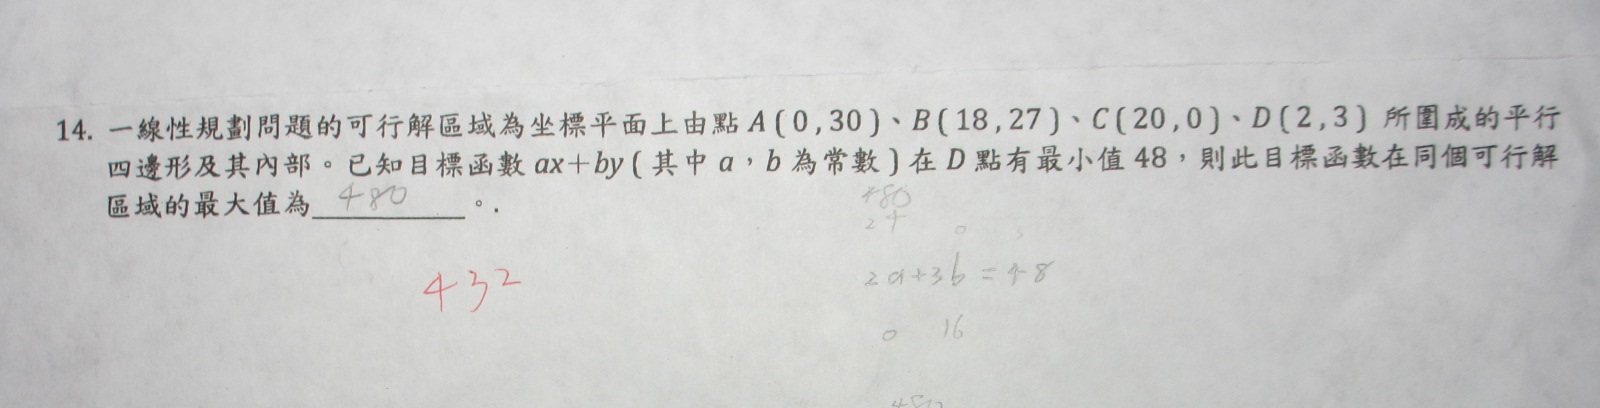 14. 一線性規劃問題的可行解區域為坐標平面上由點 A(0,30)、B(18,27)、C(20,0)、D(2,3) 所圍成的平行
四邊形及其內部。已知目標函數 ax+by(其中 a,b 為常數)在 D 點有最小值 48,則此目標函數在同個可行解
區域的最大值為 480 。.
480
24 0
432
2a+3b=48
0 16